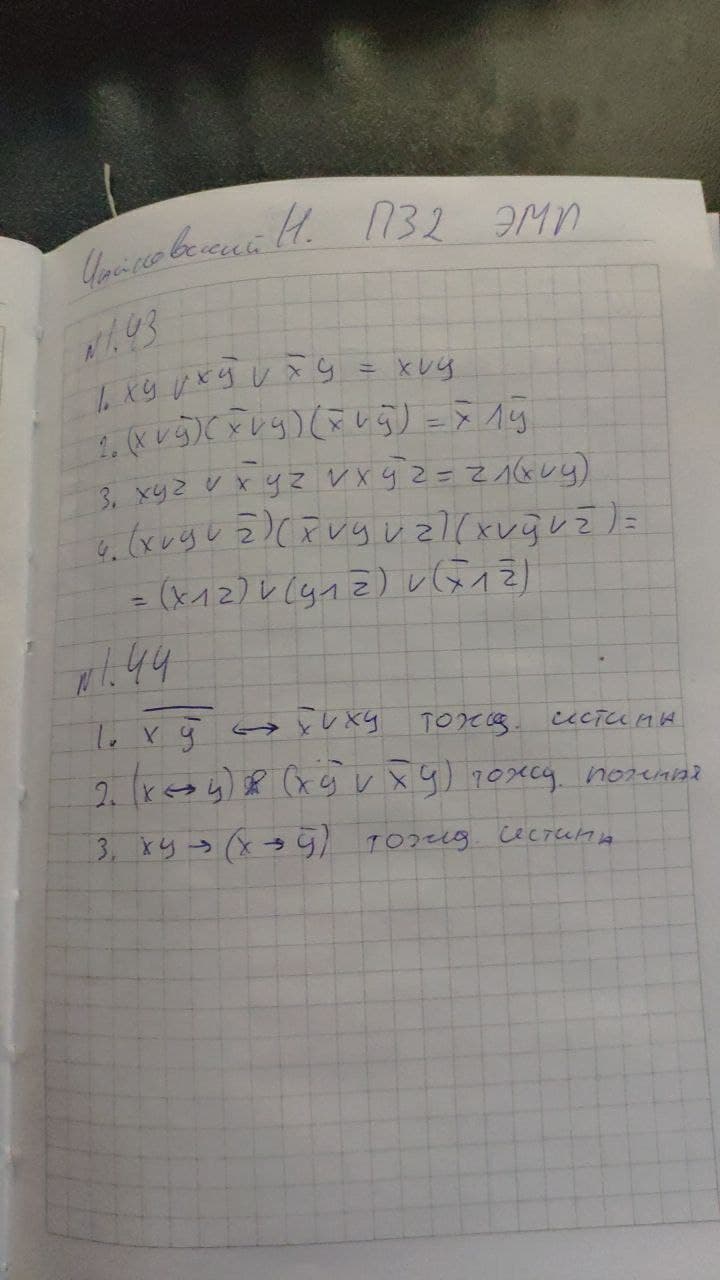 Н. ПЗ2 ЭМЛ
N1.43
1. xy ∨ xy̅ ∨ x̅y = x∨y
2. (x∨y̅)(x̅∨y)(x̅∨y̅) = x̅∧y̅
3. xyz ∨ x̅yz ∨ xy̅z = z∧(x∨y)
4. (x∨y∨z̅)(x̅∨y∨z)(x∨y̅∨z̅) =
= (x∧z)∨(y∧z̅) ∨(x̅∧z̅)
N1.44
1. x̅ ̅y̅̅ ↔ x̅∨xy тожд. истина
2. (x↔y) (xy̅ ∨ x̅y) тожд. ложная
3. xy → (x→y̅) тожд. истина